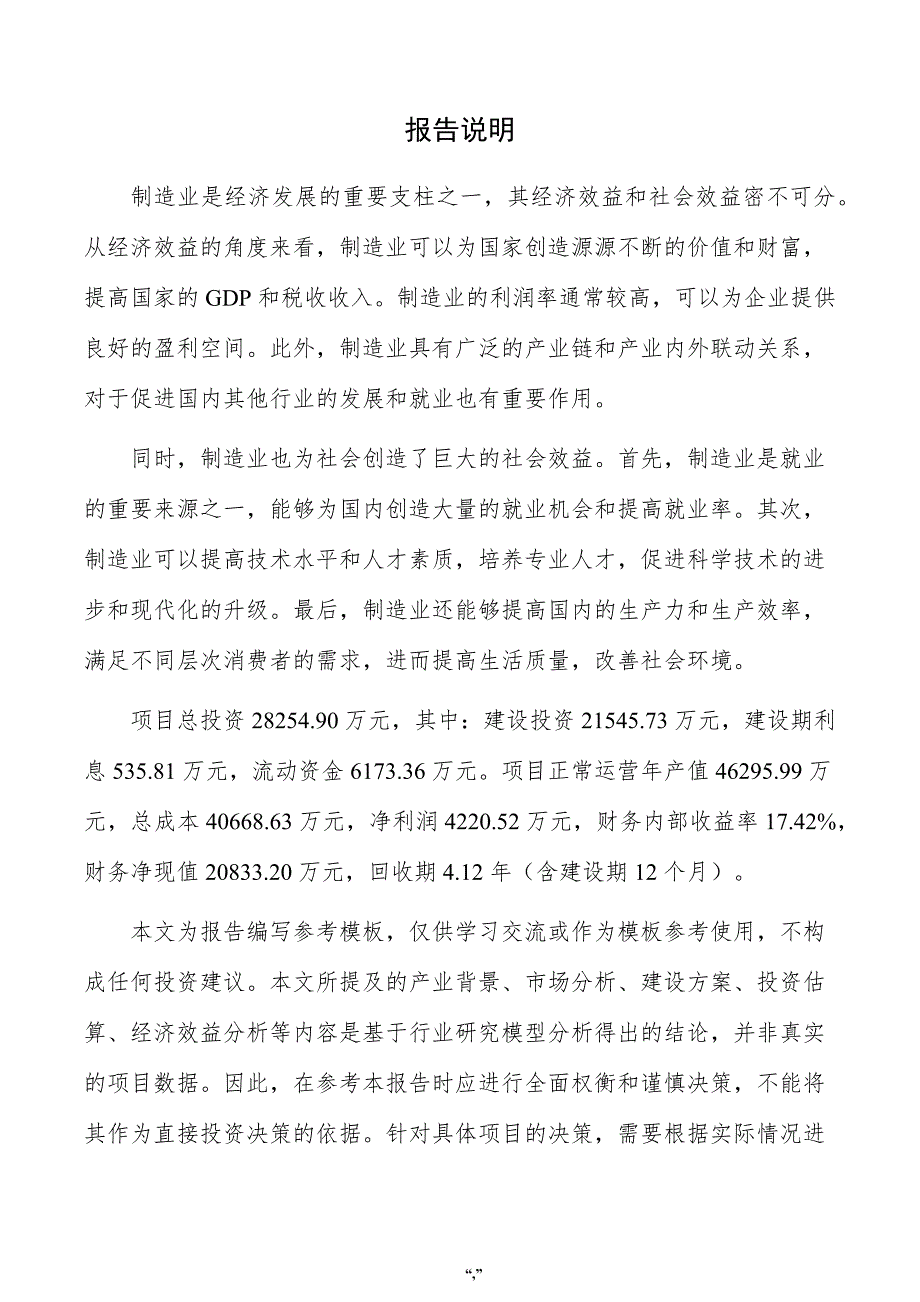 报告说明
制造业是经济发展的重要支柱之一，其经济效益和社会效益密不可分。
从经济效益的角度来看，制造业可以为国家创造源源不断的价值和财富，
提高国家的 GDP 和税收收入。制造业的利润率通常较高，可以为企业提供
良好的盈利空间。此外，制造业具有广泛的产业链和产业内外联动关系，
对于促进国内其他行业的发展和就业也有重要作用。
同时，制造业也为社会创造了巨大的社会效益。首先，制造业是就业
的重要来源之一，能够为国内创造大量的就业机会和提高就业率。其次，
制造业可以提高技术水平和人才素质，培养专业人才，促进科学技术的进
步和现代化的升级。最后，制造业还能够提高国内的生产力和生产效率，
满足不同层次消费者的需求，进而提高生活质量，改善社会环境。
项目总投资 28254.90 万元，其中：建设投资 21545.73 万元，建设期利
息 535.81 万元，流动资金 6173.36 万元。项目正常运营年产值 46295.99 万
元，总成本 40668.63 万元，净利润 4220.52 万元，财务内部收益率 17.42%，
财务净现值 20833.20 万元，回收期 4.12 年（含建设期 12 个月）。
本文为报告编写参考模板，仅供学习交流或作为模板参考使用，不构
成任何投资建议。本文所提及的产业背景、市场分析、建设方案、投资估
算、经济效益分析等内容是基于行业研究模型分析得出的结论，并非真实
的项目数据。因此，在参考本报告时应进行全面权衡和谨慎决策，不能将
其作为直接投资决策的依据。针对具体项目的决策，需要根据实际情况进
“,”